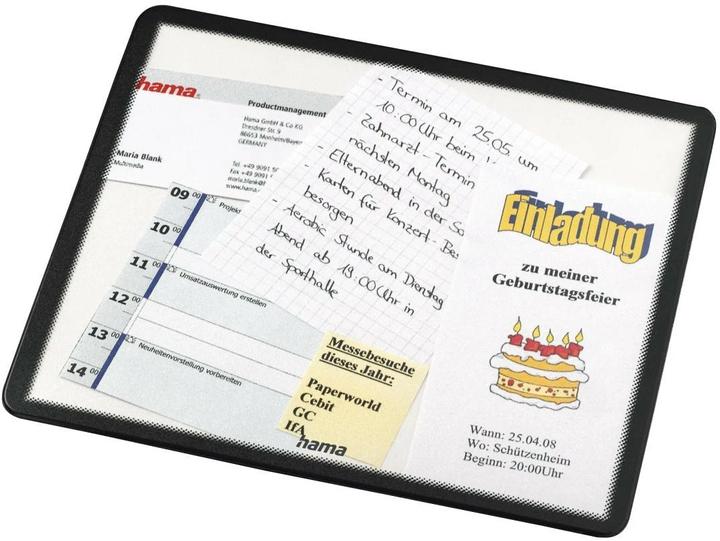 hama
Productmanagement
Hama GmbH & Co KG
Dresdner Str. 9
86653 Monheim/Bayern
GERMANY
Maria Blank
Multimedia
Tel. +49 9091
Fax +49 9091
www.hama.
09 00
Projekt
10 00
11 00
Umsatzauswertung erstellen
12 00
13 00
Neuheitenvorstellung vorbereiten
14 00
- Termin am 25.05. um
10:00 Uhr beim
- Zahnarzt-Termin
nächsten Montag
- Elternabend in der
- Karten für Konzert-
besorgen
- Aerobic Stunde am Dienstag
Abend ab 19.00 Uhr in
der Sporthalle
Messebesuche
dieses Jahr:
Paperworld
Cebit
GC
IfA
hama
Einladung
zu meiner
Geburtstagsfeier
Wann: 25.04.08
Wo: Schützenheim
Beginn: 20:00Uhr